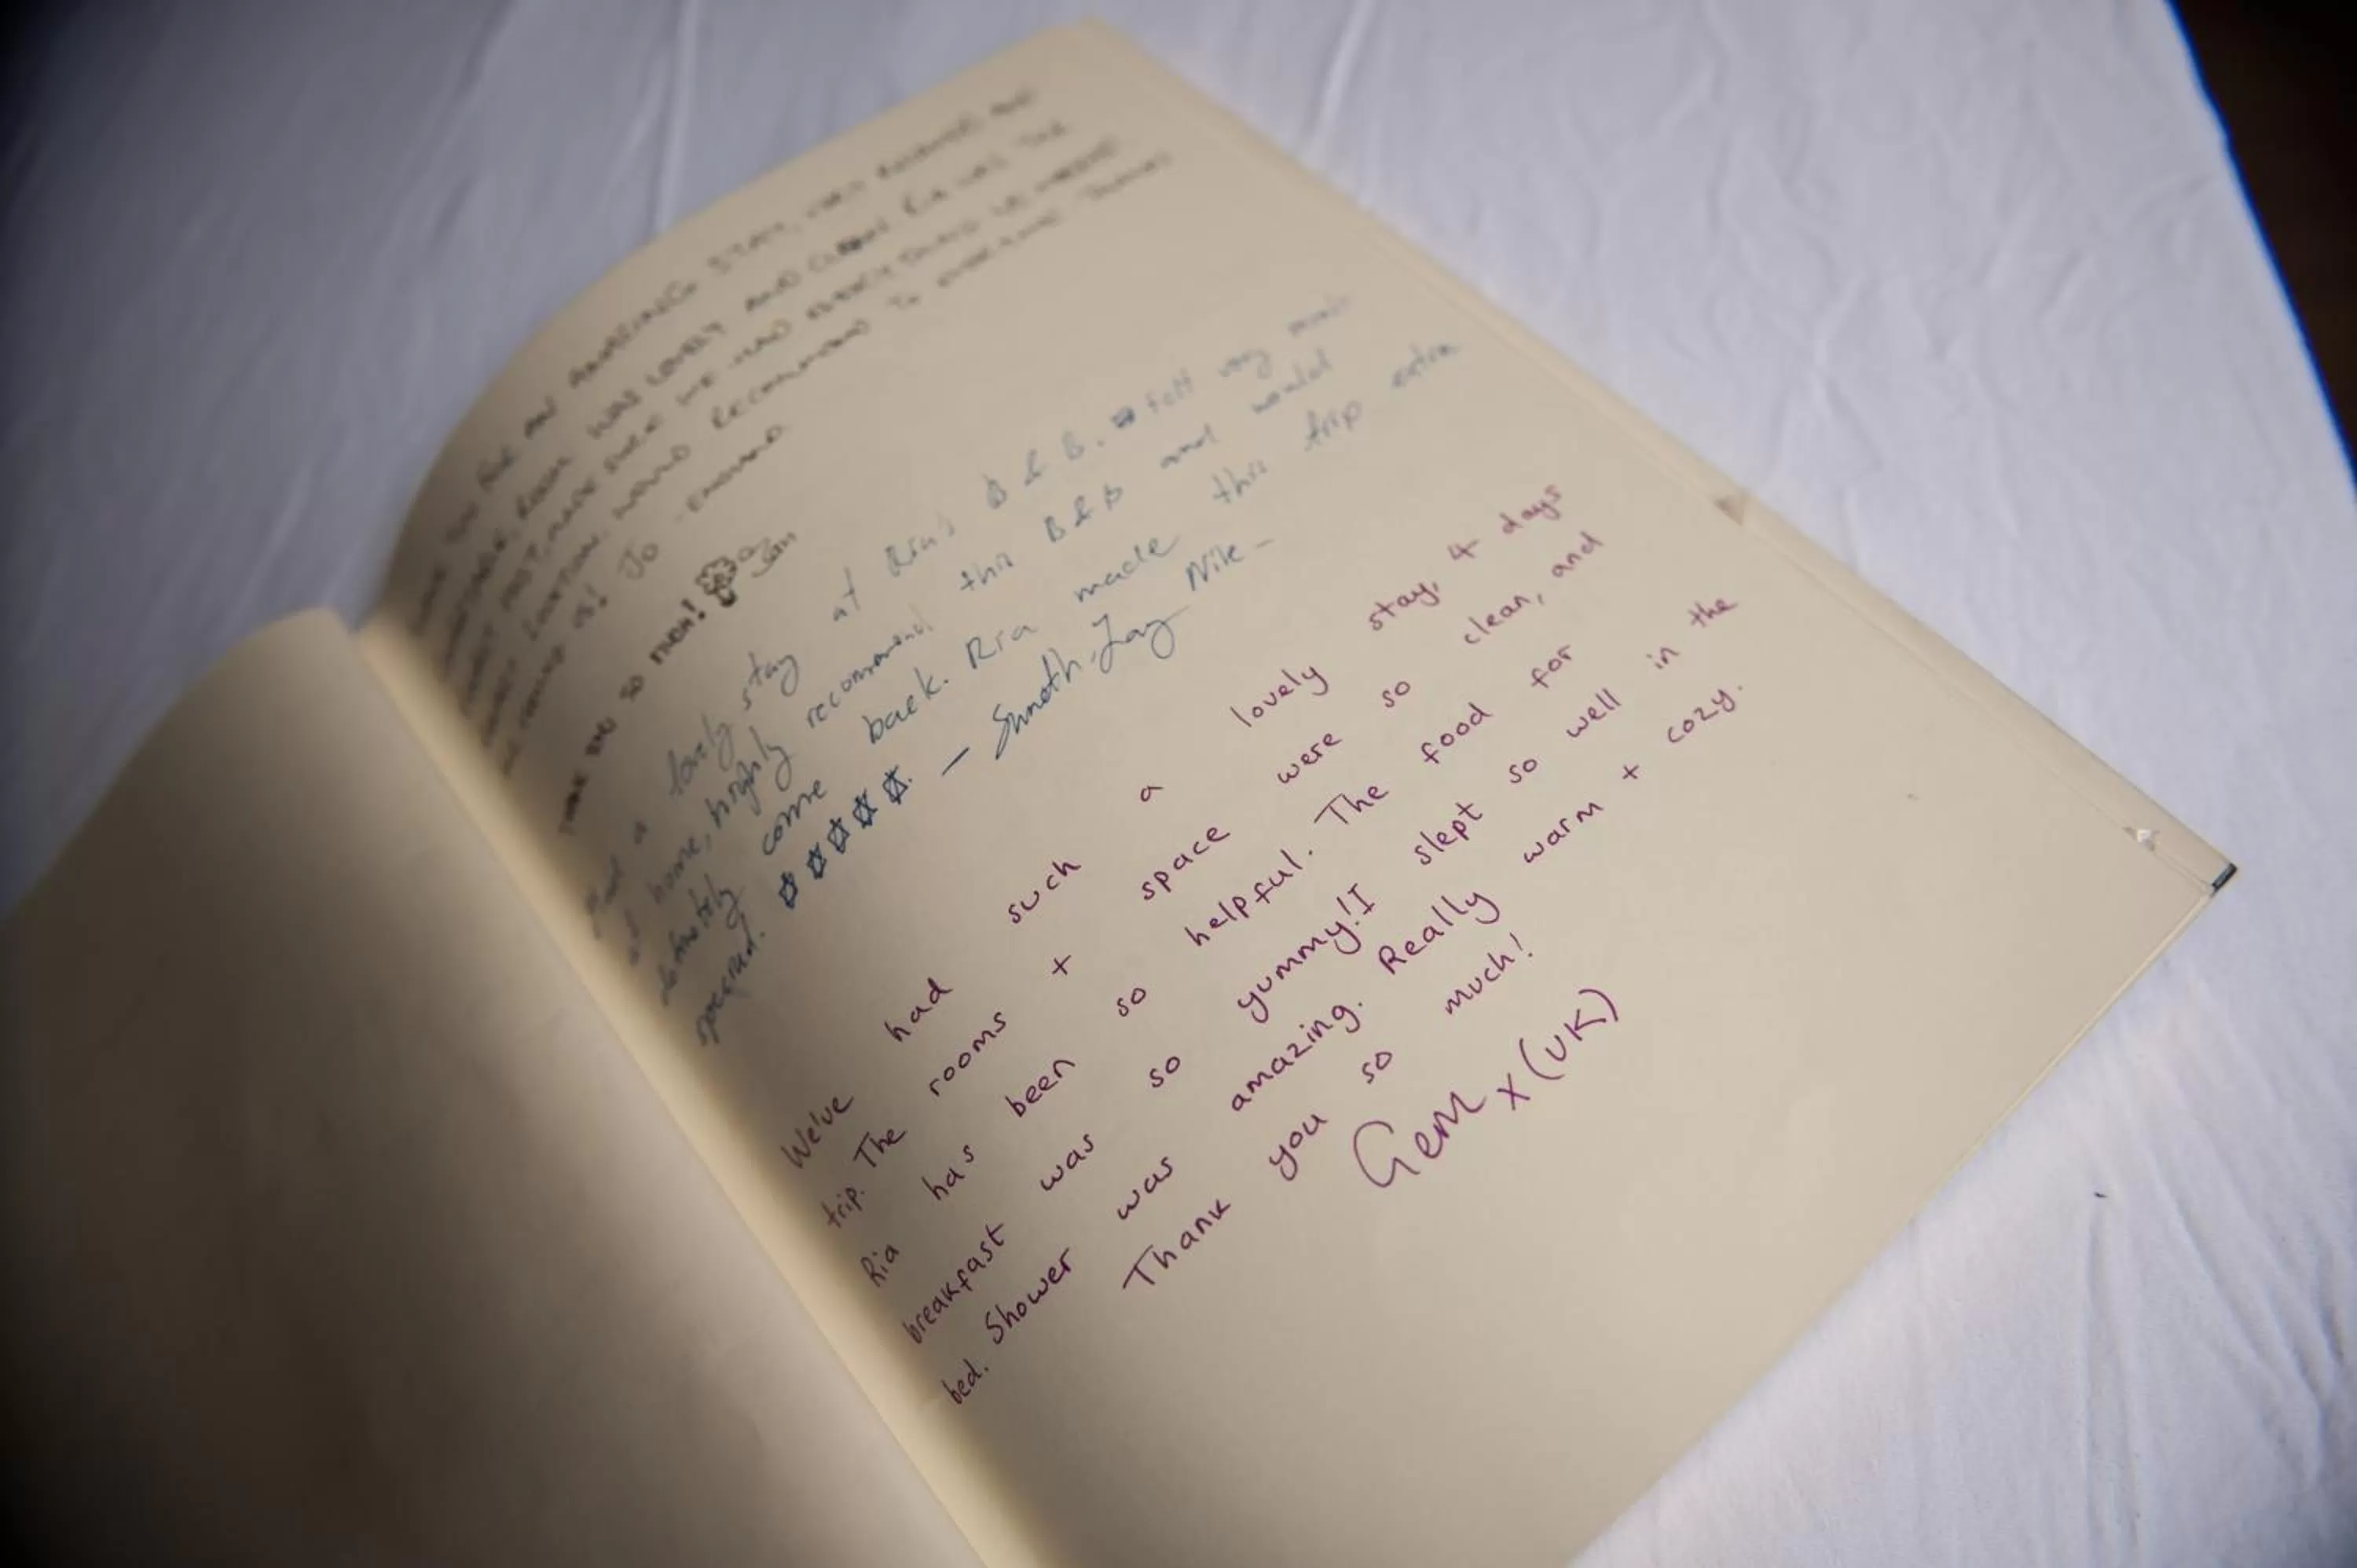 AN AMAZING STAY, VERY
ROOM WAS LOVELY AND CLEAN RIA WAS THE
MADE SURE WE HAD EVERYTHING WE NEEDED
LOCATION. WOULD RECOMMEND TO THANKS
JO - ENGLAND.
THANK YOU SO MUCH!
Had a lovely stay at Ria's B & B. felt very much
at home, highly recommend this B&B and would
definitely come back. Ria made this trip extra
special. ✡✡✡✡✡. — Nik -
We've had such a lovely stay, 4 days
trip. The rooms + space were so clean, and
Ria has been so helpful. The food for
breakfast was so yummy! I slept so well in the
bed. Shower was amazing. Really warm + cozy.
Thank you so much!
Gem x (UK)